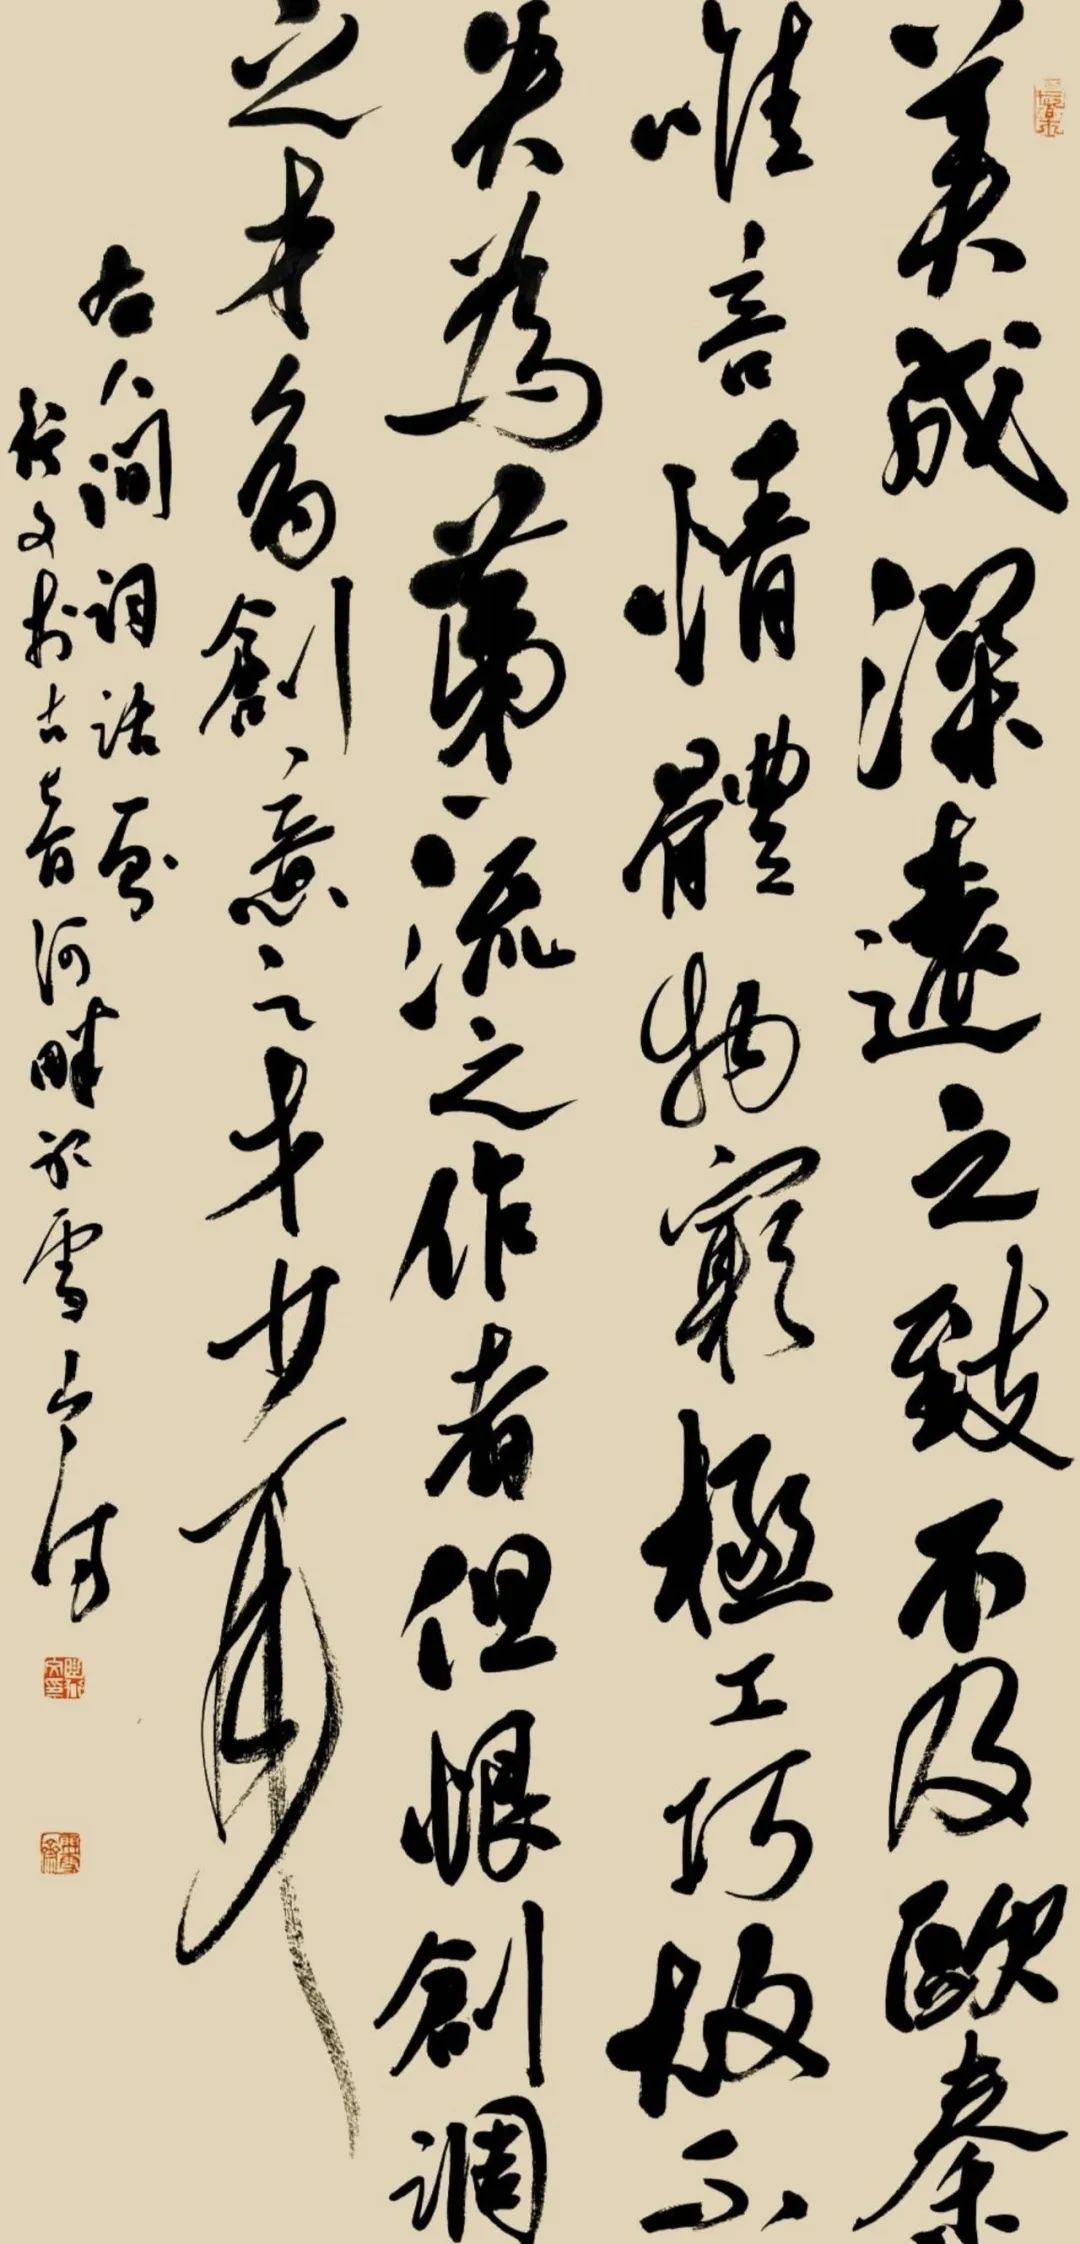 美成深遠之致不及歐秦
唯言情體物窮極工巧故不
失為第一流之作者但恨創調
之才多創意之才少耳
右人間詞話一則
於古音河畔